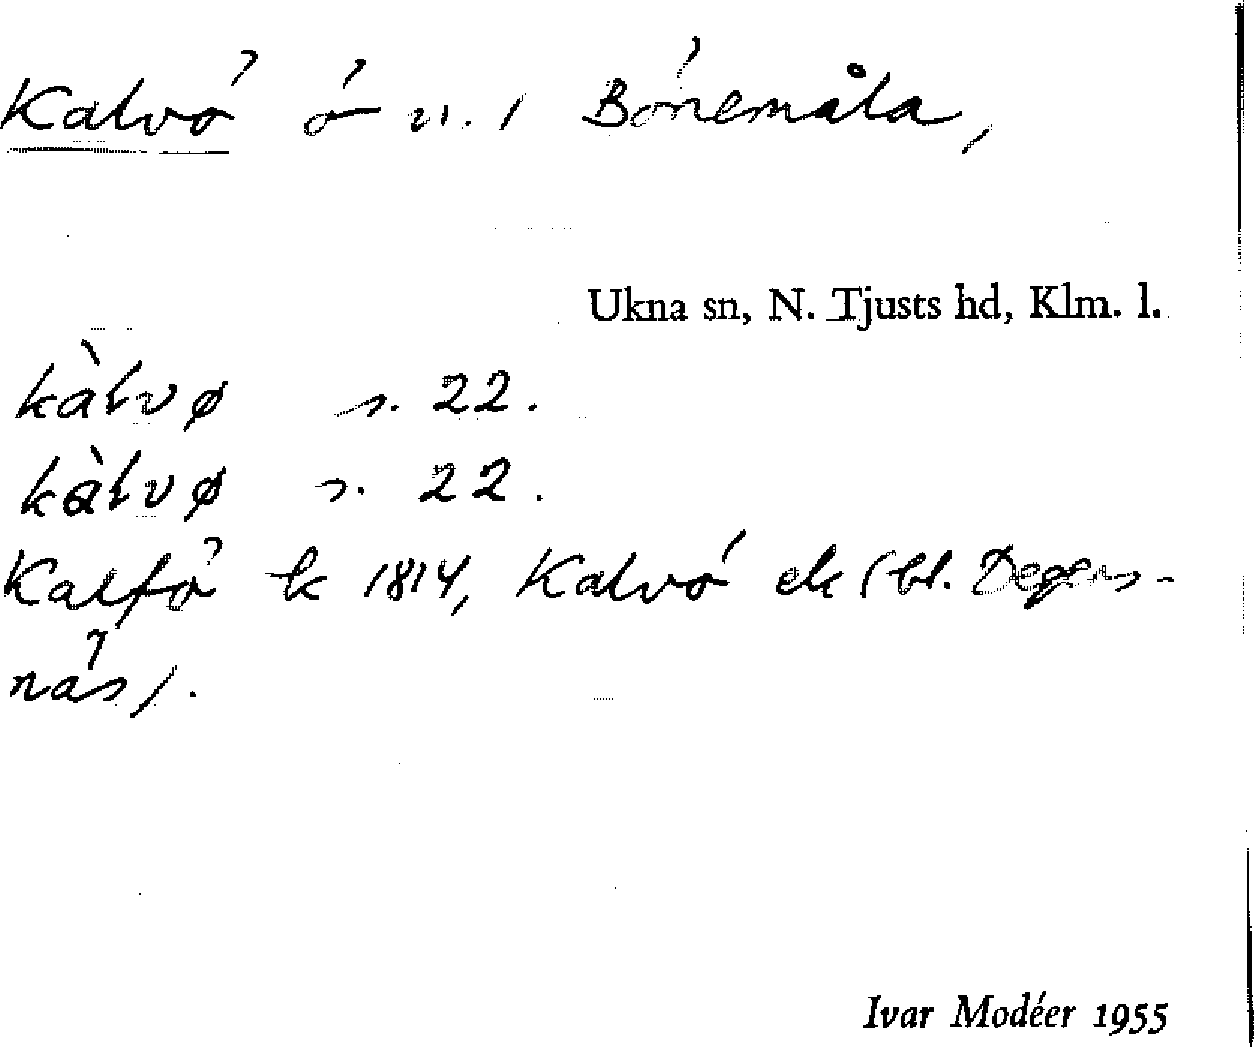 Kalvö ö n. i Bönemåla,
Ukna sn, N. Tjusts hd, Klm. l.
kàlvø s. 22.
kàlvø s. 22.
Kalfö k 1814, Kalvö ek (bl. Degers-
näs).
Ivar Modéer 1955